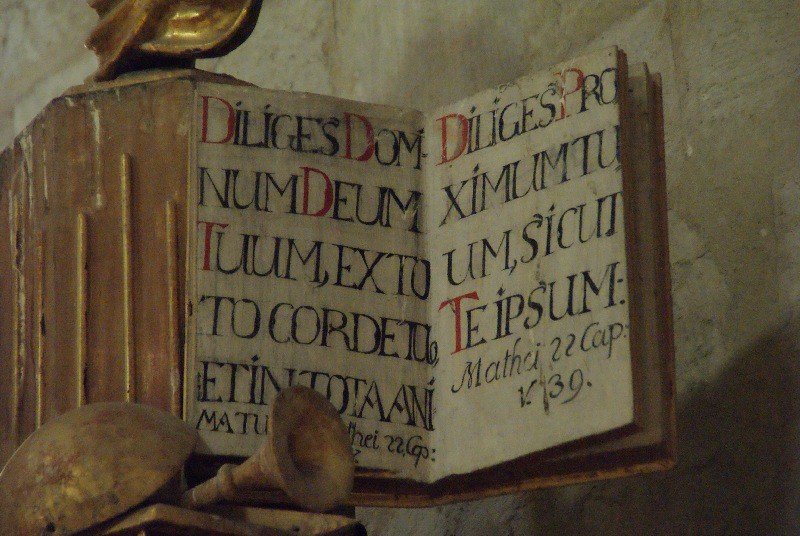 DILIGES DOMI-
NUM DEUM
TUUM, EX TO
TO CORDE TUO,
ET IN TOTA ANI
MA TU
22 Cap:
DILIGES PRO
XIMUM TU
UM, SICUT
TE IPSUM:
Mathei 22 Cap:
v. 39.